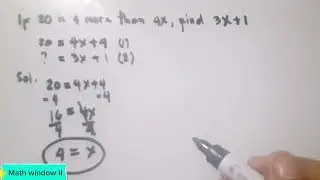 If 20 is 4 more than 4x, find 3x+1
20 = 4x+4 (1)
? = 3x+1 (2)
Sol.
20 = 4x+4
-4 -4
16 = 4x
4 4
4 = x
Math window II